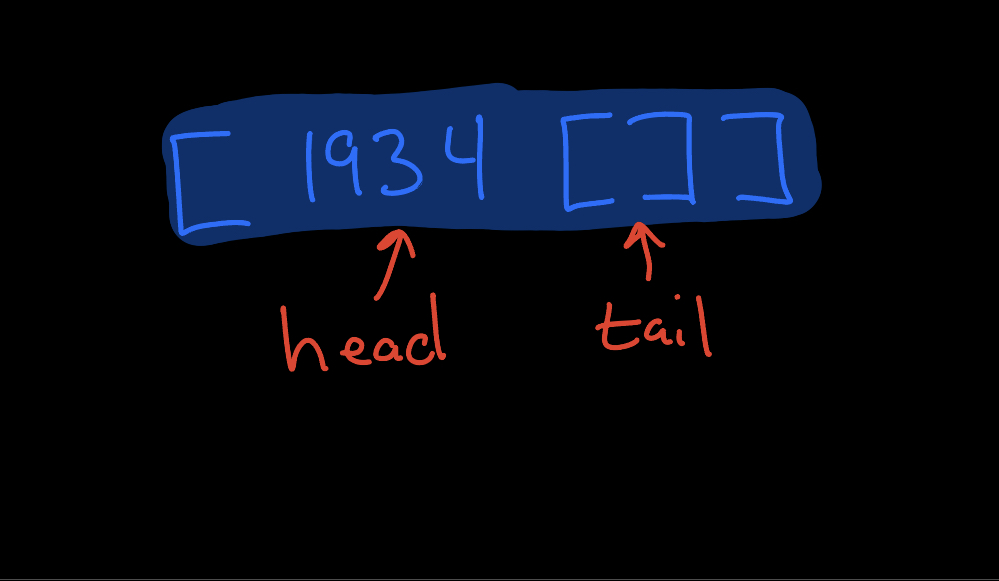 [ 1934 [] ]
head tail